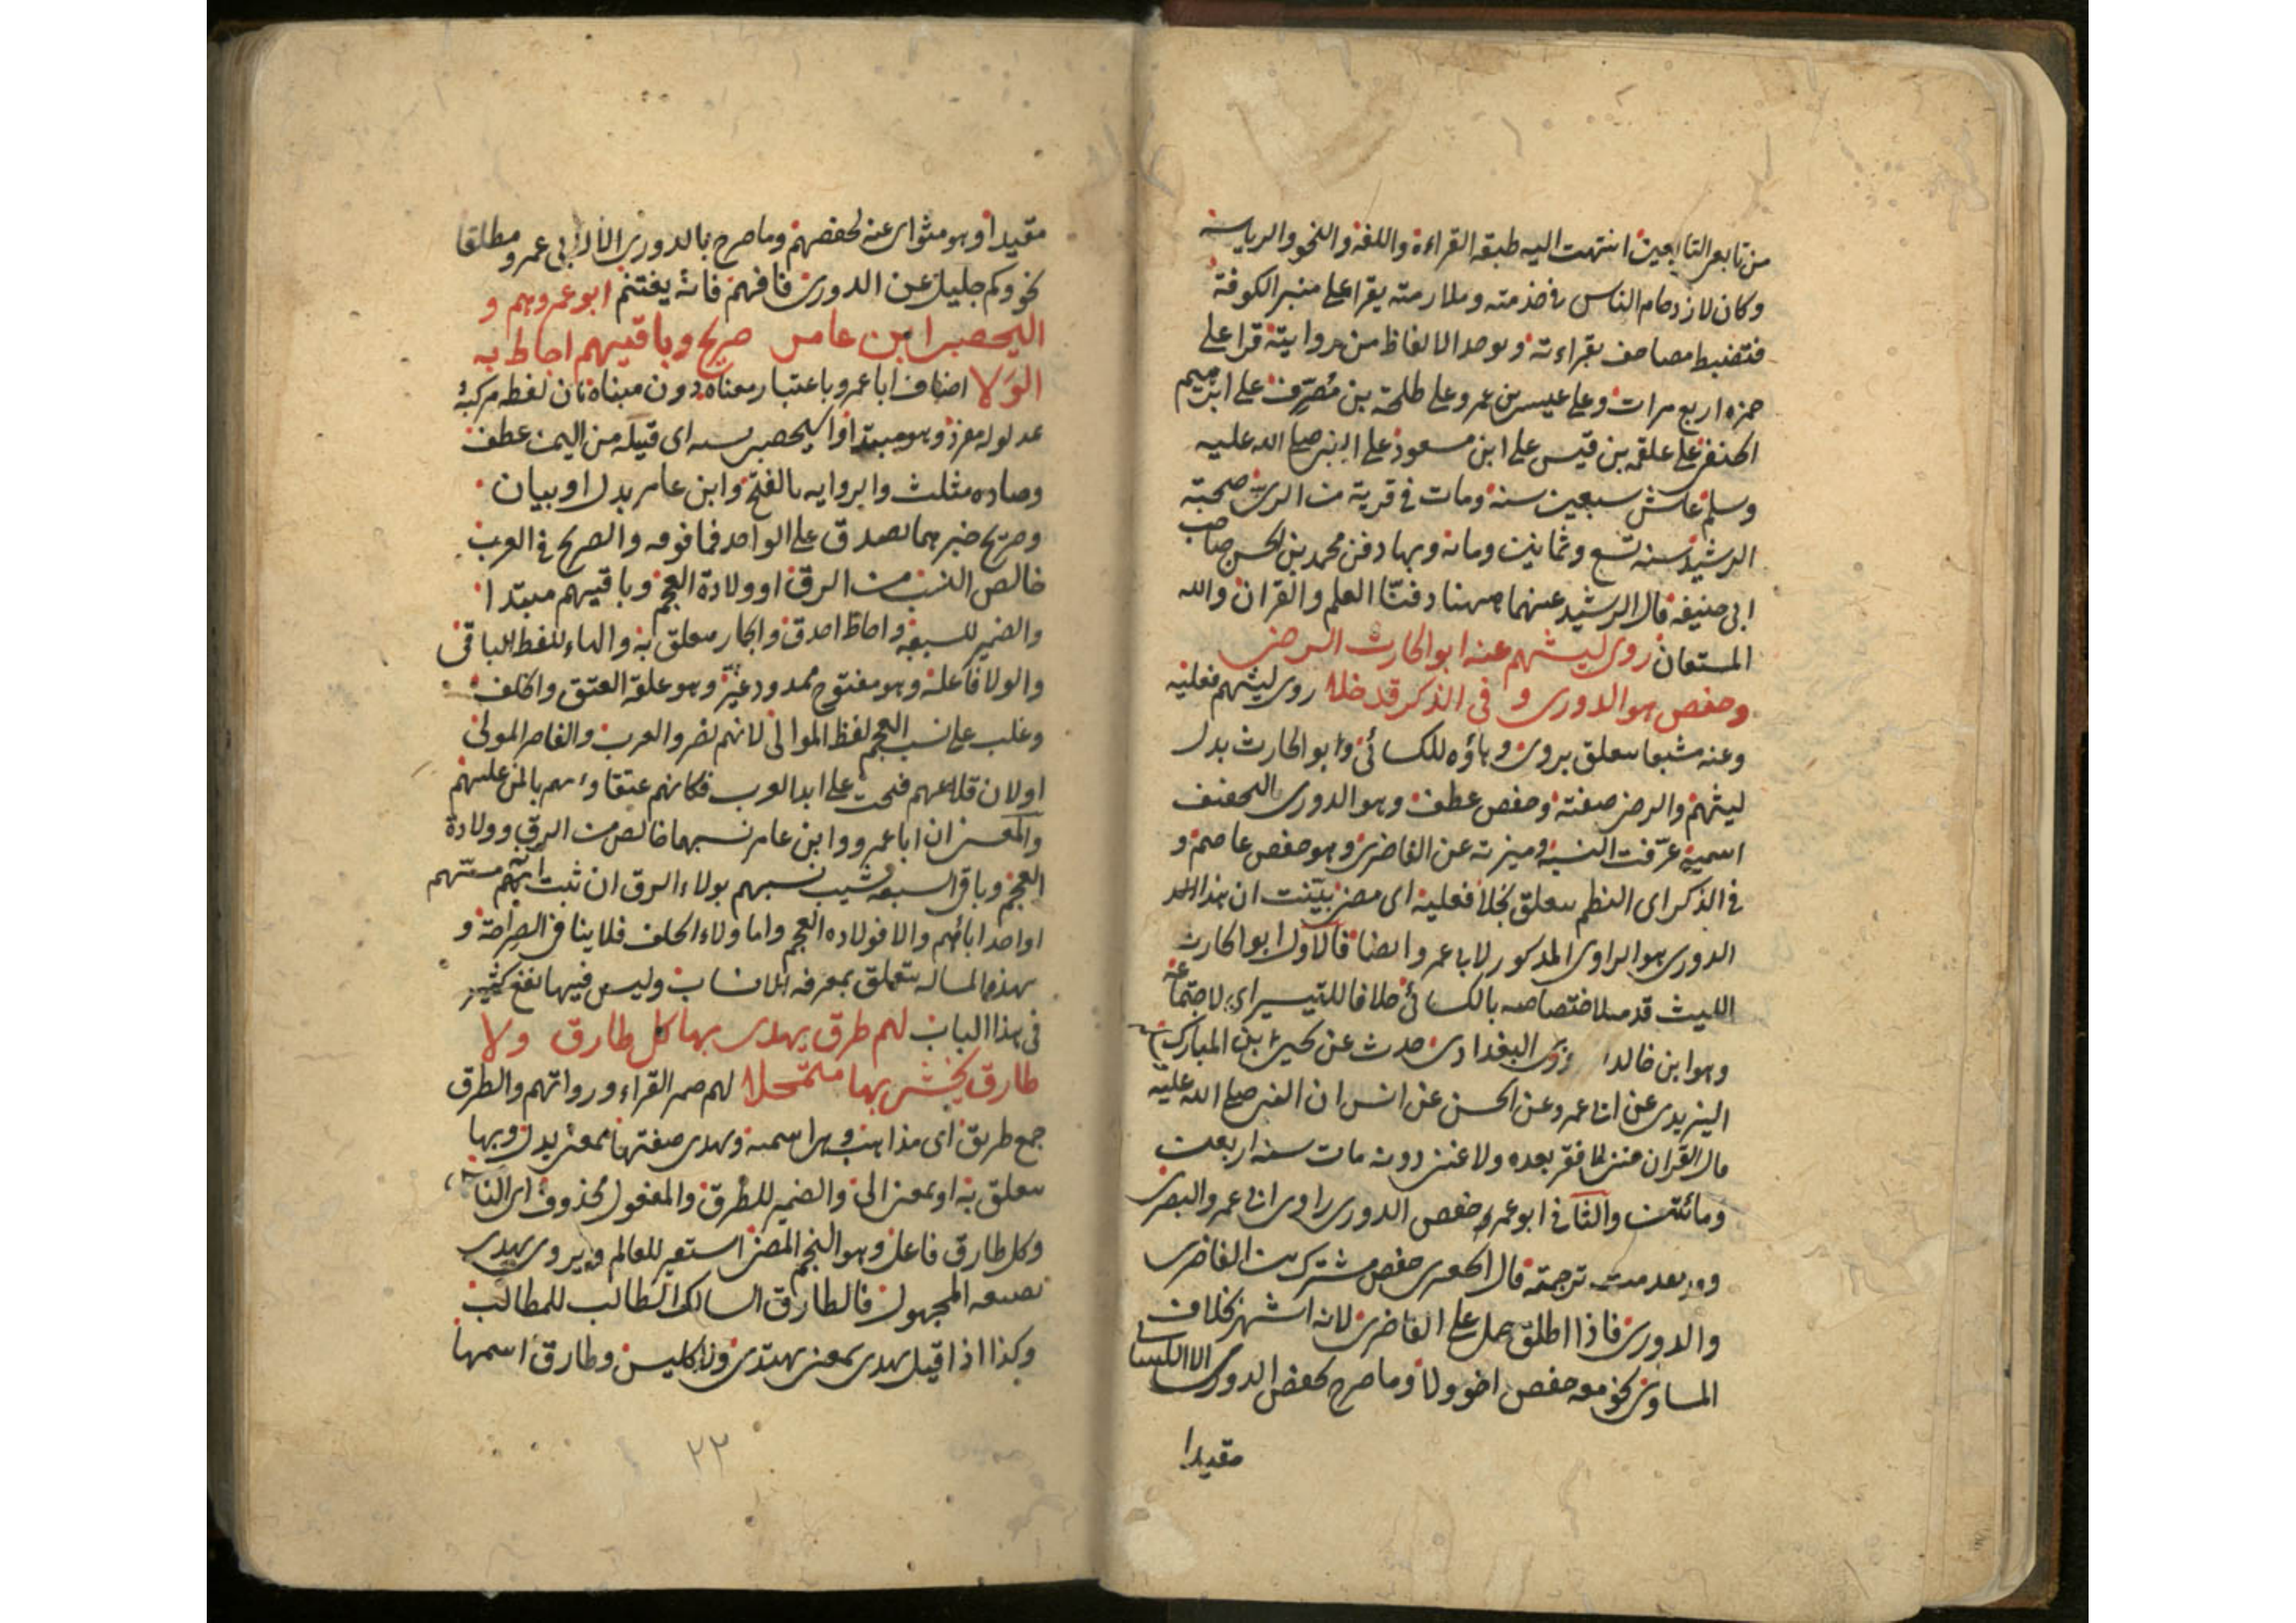 من تابعى التابعين انتهت اليه طبقة القراءة واللغة والنحو والرياسة
وكان لازدحام الناس فى خدمته وملازمته يقرا على منبر الكوفة
فتضبط مصاحف بقراءته وتوخد الالفاظ من روايته قرا على
حمزه اربع مرات وعلى عيسى بن عمر وعلى طلحة بن مصرف على ابرهيم
النخعى على علقمة بن قيس على ابن مسعود على النبى صلى الله عليه
وسلم عاش سبعين سنة ومات فى قرية من الرى صحبة
الرشيد سنة تسع وثمانين ومائة وبها دفن محمد بن الحسن صاحب
ابى حنيفة قال الرشيد عنهما ههنا دفنا العلم والقران والله
المستعان روى ليثهم عنه ابو الحارث الرضى
وحفص هو الدورى و فى الذكر قد خلا روى ليثهم فعلية
وعنه مشبعا متعلق بروى وهاؤه للكسائى وابو الحارث بدل
ليثهم والرضى صفته وحفص عطف وهو الدورى بالتخفيف
اسمية عرفت النسبة وميزته عن الغاضرى وهو حفص عاصم و
فى الذكر اى النظم متعلق بخلا فعلية اى مضى بينت ان هذا
الدورى هو الراوى المذكور لابى عمرو ايضا فالاول ابو الحارث
الليث قدمه لاختصاصه بالكسائى خلافا للتيسير اى لاجتماعه
وهو ابن خالد البغدادى حدث عن يحيى بن المبارك
اليزيدى عن ابى عمرو عن الحسن عن انس ان النبى صلى الله عليه
قال القران غنى لا فقر بعده ولا غنى دونه مات سنة اربعين
ومائتين والثانى ابو عمر حفص الدورى راوى ابى عمرو البصرى
وقد تقدمت ترجمته قال الجعبرى حفص مشترك بين الغاضرى
والدورى فاذا اطلق حمل على الغاضرى لانه اشهر بخلاف
المساوى نحو معه حفص اخو ولا وما صرح كحفص الدورى الا للكسائى
مقيدا
مقيدا وهو مثواى عنه لحفصهم وما صرح بالدورى الا لابى عمرو مطلقا
نحو وكم جليل عن الدورى فافهم فانه يغتنم ابو عمروهم و
اليحصبى ابن عامر صريح وباقيهم احاط به
الولا اضاف ابا عمرو باعتبار معناه دون مبناه فان لفظه مركب
مدلوله مفرد وهو مبتدا واليحصبى نسبه اى قبيلة من اليمن عطف
وصاده مثلث والرواية بالفتح وابن عامر بدل او بيان
وصريح خبرهما يصدق على الواحد فما فوقه والصريح فى العرب
خالص النسب من الرق او ولادة العجم وباقيهم مبتدا
والضمير للسبعة واحاط احدق والجار متعلق به والهاء للفظ الباقى
والولا فاعله وهو مفتوح ممدود وهو علقة العتق والحلف
وغلب على نسب العجم لفظ الموالى لانهم نصروا العرب والناصر المولى
اولان قلاعهم فتحت على ايدى العرب فكانهم عتقاؤهم بالمن عليهم
والمعنى ان ابا عمرو وابن عامر نسبهما خالص من الرق وولادة
العجم وباقى السبعة شيب نسبهم بولاء الرق ان ثبت انهم مستهم
او احد ابائهم والا فولاده العجم واما ولاء الحلف فلا ينافى الصراحة و
بهذه المسالة يتعلق بمعرفة الانساب وليس فيها نفع كثير
فى هذا الباب لهم طرق يهدى بها كل طارق ولا
طارق يخشى بها متمحلا لهم ضمير القراء ورواتهم والطرق
جمع طريق اى مذاهب وهى اسمية ويهدى صفتها بمعنى يدل وبها
متعلق به او بمعنى الى والضمير للطرق والمفعول محذوف اى الناس
وكل طارق فاعل وهو النجم المضى استعير للعالم ويروى يهدى
بصيغة المجهول فالطارق السالك الطالب للمطالب
وكذا اذا قيل يهدى بمعنى يهتدى وطارق اسمها
٢٢